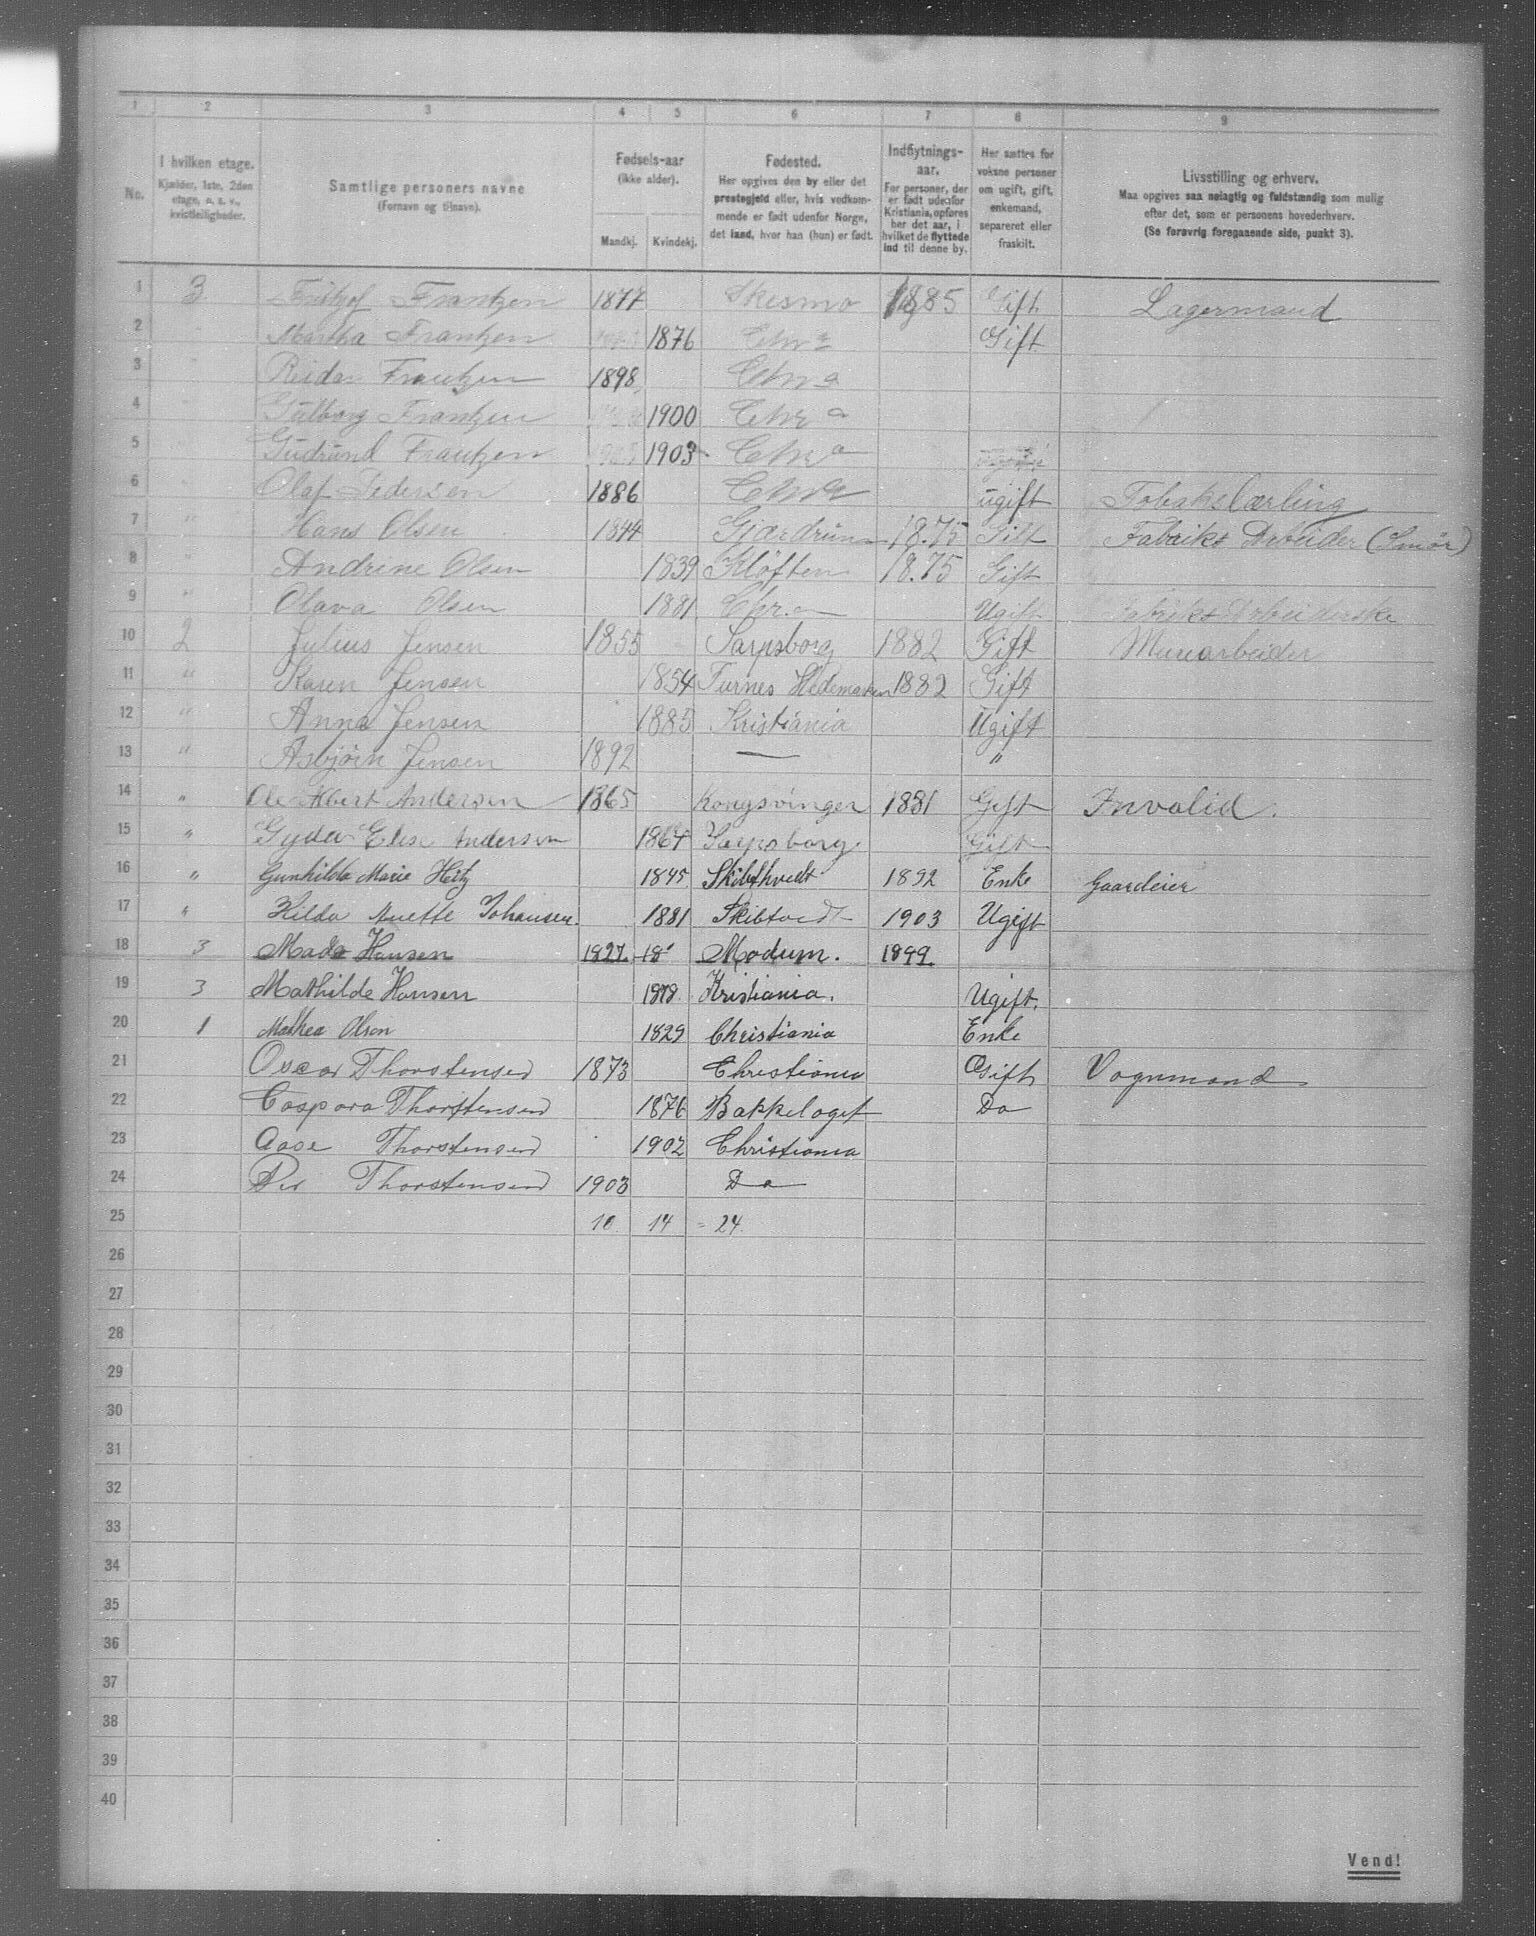 1 2 3 4 5 6 7 8 9
No.
I hvilken etage.
Kjælder, 1ste, 2den
etage, o. s. v.,
kvistleiligheder.
Samtlige personers navne
(Fornavn og tilnavn).
Fødsels-aar
(ikke alder).
Mandkj. Kvindekj.
Fødested.
Her opgives den by eller det
prestegjeld eller, hvis vedkom-
mende er født udenfor Norge,
det land, hvor han (hun) er født.
Indflytnings-
aar.
For personer, der
er født udenfor
Kristiania, opføres
her det aar, i
hvilket de flyttede
ind til denne by.
Her sættes for
voksne personer
om ugift, gift,
enkemand,
separeret eller
fraskilt.
Livsstilling og erhverv.
Maa opgives saa nøiagtig og fuldstændig som mulig
efter det, som er personens hovederhverv.
(Se forøvrig foregaaende side, punkt 3).
1 3 Fritjof Frantzen 1877 Skesmo 1885 Gift Lagermand
2 " Martha Frantzen 1876 Chra Gift
3 " Reidar Frantzen 1898 Chra
4 " Gulborg Frantzen 1900 Chra
5 Gudrund Frantzen 1903 Chra
6 Olaf Pedersen 1886 Chra ugift Tobakslærling
7 " Hans Olsen 1844 Gjærdrum 18.75 Gift Fabriks Arbeider (Smør)
8 " Andrine Olsen 1839 Kløften 18.75 Gift
9 " Olava Olsen 1881 Chr.a Ugift Fabriks Arbeiderske
10 2 Julius Jensen 1855 Sarpsborg 1882 Gift Murarbeider
11 " Karen Jensen 1854 Furnes Hedemarken 1882 Gift
12 " Anna Jensen 1885 Kristiania Ugift
13 " Asbjørn Jensen 1892 — "
14 " Ole Albert Andersen 1865 Kongsvinger 1881 Gift Invalid.
15 " Gyda Elise Andersen 1864 Sarpsborg Gift
16 " Gunhilda Marie Heitz 1845 Skibthvedt 1892 Enke Gaardeier
17 " Hilda Anette Johansen. 1881 Skibtvedt 1903 Ugift
18 3 Mads Hansen 1827. 18 Modum. 1899.
19 3 Mathilde Hansen 1878. Kristiania. Ugift.
20 1 Mathea Olson 1829 Christiania Enke
21 Oscar Thorstensen 1873 Christiania Gift Vognmand
22 Caspara Thorstensen 1876 Bakkelaget Do
23 Aase Thorstensen 1902 Christiania
24 Per Thorstensen 1903 Do
25 10 14 = 24.
26
27
28
29
30
31
32
33
34
35
36
37
38
39
40
Vend!